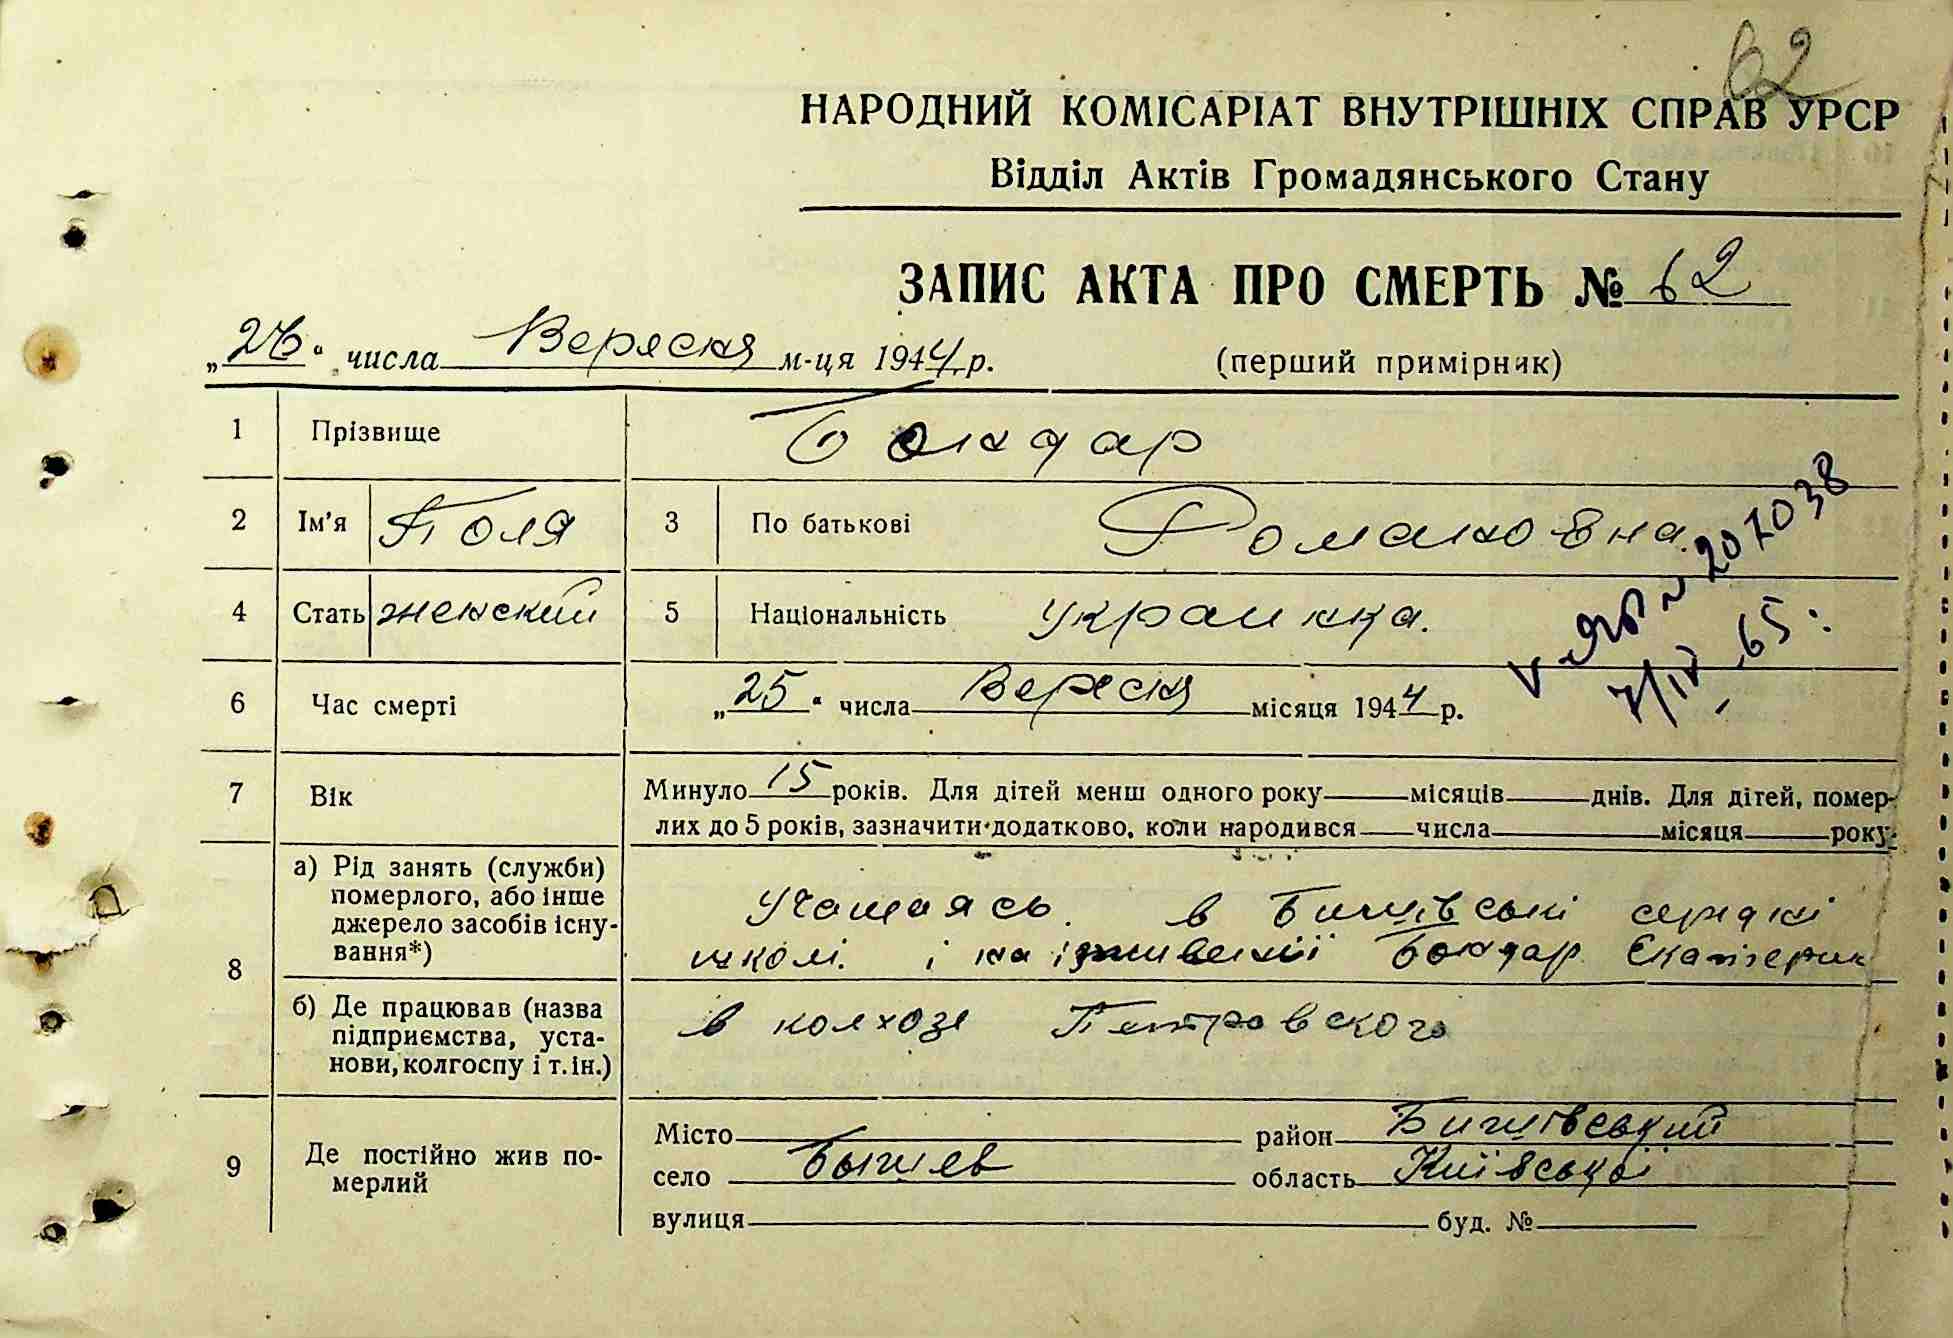 62
НАРОДНИЙ КОМІСАРІАТ ВНУТРІШНІХ СПРАВ УРСР
Відділ Актів Громадянського Стану
ЗАПИС АКТА ПРО СМЕРТЬ № 62
„26" числа Вересня м-ця 1944 р. (перший примірник)
1 Прізвище Бондар
2 Ім'я Поля 3 По батькові Романовна
4 Стать женский 5 Національність украинка.
207038
7/IV 65
6 Час смерті „25" числа Вересня місяця 1944 р.
7 Вік Минуло 15 років. Для дітей менш одного року місяців днів. Для дітей, помер-
лих до 5 років, зазначити додатково, коли народився числа місяця року
8 а) Рід занять (служби)
померлого, або інше
джерело засобів існу-
вання*)
Учащаясь в Бишівські середні
школі. і на іждивенії Бондар Екатерин
б) Де працював (назва
підприємства, уста-
нови, колгоспу і т. ін.)
в колхозі Петровского
9 Де постійно жив по-
мерлий
Місто район Бишівський
село Бышев область Київської
вулиця буд. №